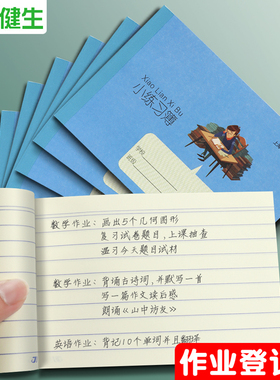 健生
Xiao Lian Xi Bu
小练习簿
学校
班级
数学作业：画出5个几何图形
复习试卷题目，上课抽查
温习今天题目试材
数学作业：背诵古诗词，并默写一首
写一篇作文读后感
朗诵《山中访友》
英语作业：背记10个单词并且翻译
作业登记